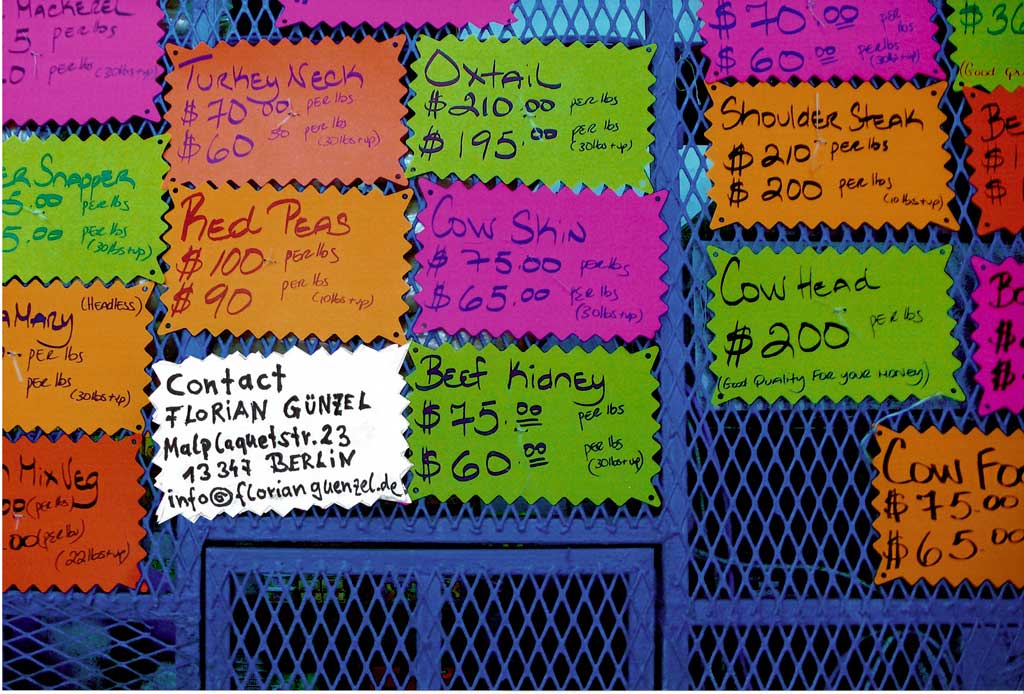 MACKEREL
5 per lbs
0 per lbs (30lbs+up)
ER SNAPPER
5.00 per lbs
5.00 per lbs
(30lbs+up)
(HEADLESS)
AMARY
PER lbs
PER lbs
(30lbs+up)
MIX VEG
00 (per lbs)
.00 (per lbs)
(22lbs+up)
TURKEY NECK
$70.00 PER lbs
$60 50 PER lbs
(30lbs+up)
RED PEAS
$100 PER lbs
$90 PER lbs
(10lbs+up)
Contact
FLORIAN GÜNZEL
Malplaquetstr. 23
13347 BERLIN
info@florianguenzel.de
OXTAIL
$210.00 PER lbs
$195.00 PER lbs
(30lbs+up)
COW SKIN
$75.00 PER lbs
$65.00 PER lbs
(30lbs+up)
BEEF KIDNEY
$75.00 per lbs
$60.00 PER lbs
(30lbs+up)
$70.00 PER lbs
$60.00 per lbs
(30lbs+up)
SHOULDER STEAK
$210 PER lbs
$200 PER lbs
(10lbs+up)
COW HEAD
$200 PER lbs
(GOOD QUALITY FOR YOUR MONEY)
$36
(Good Gr
BE
$1
$
BO
$
$
COW FOO
$75.00
$65.00